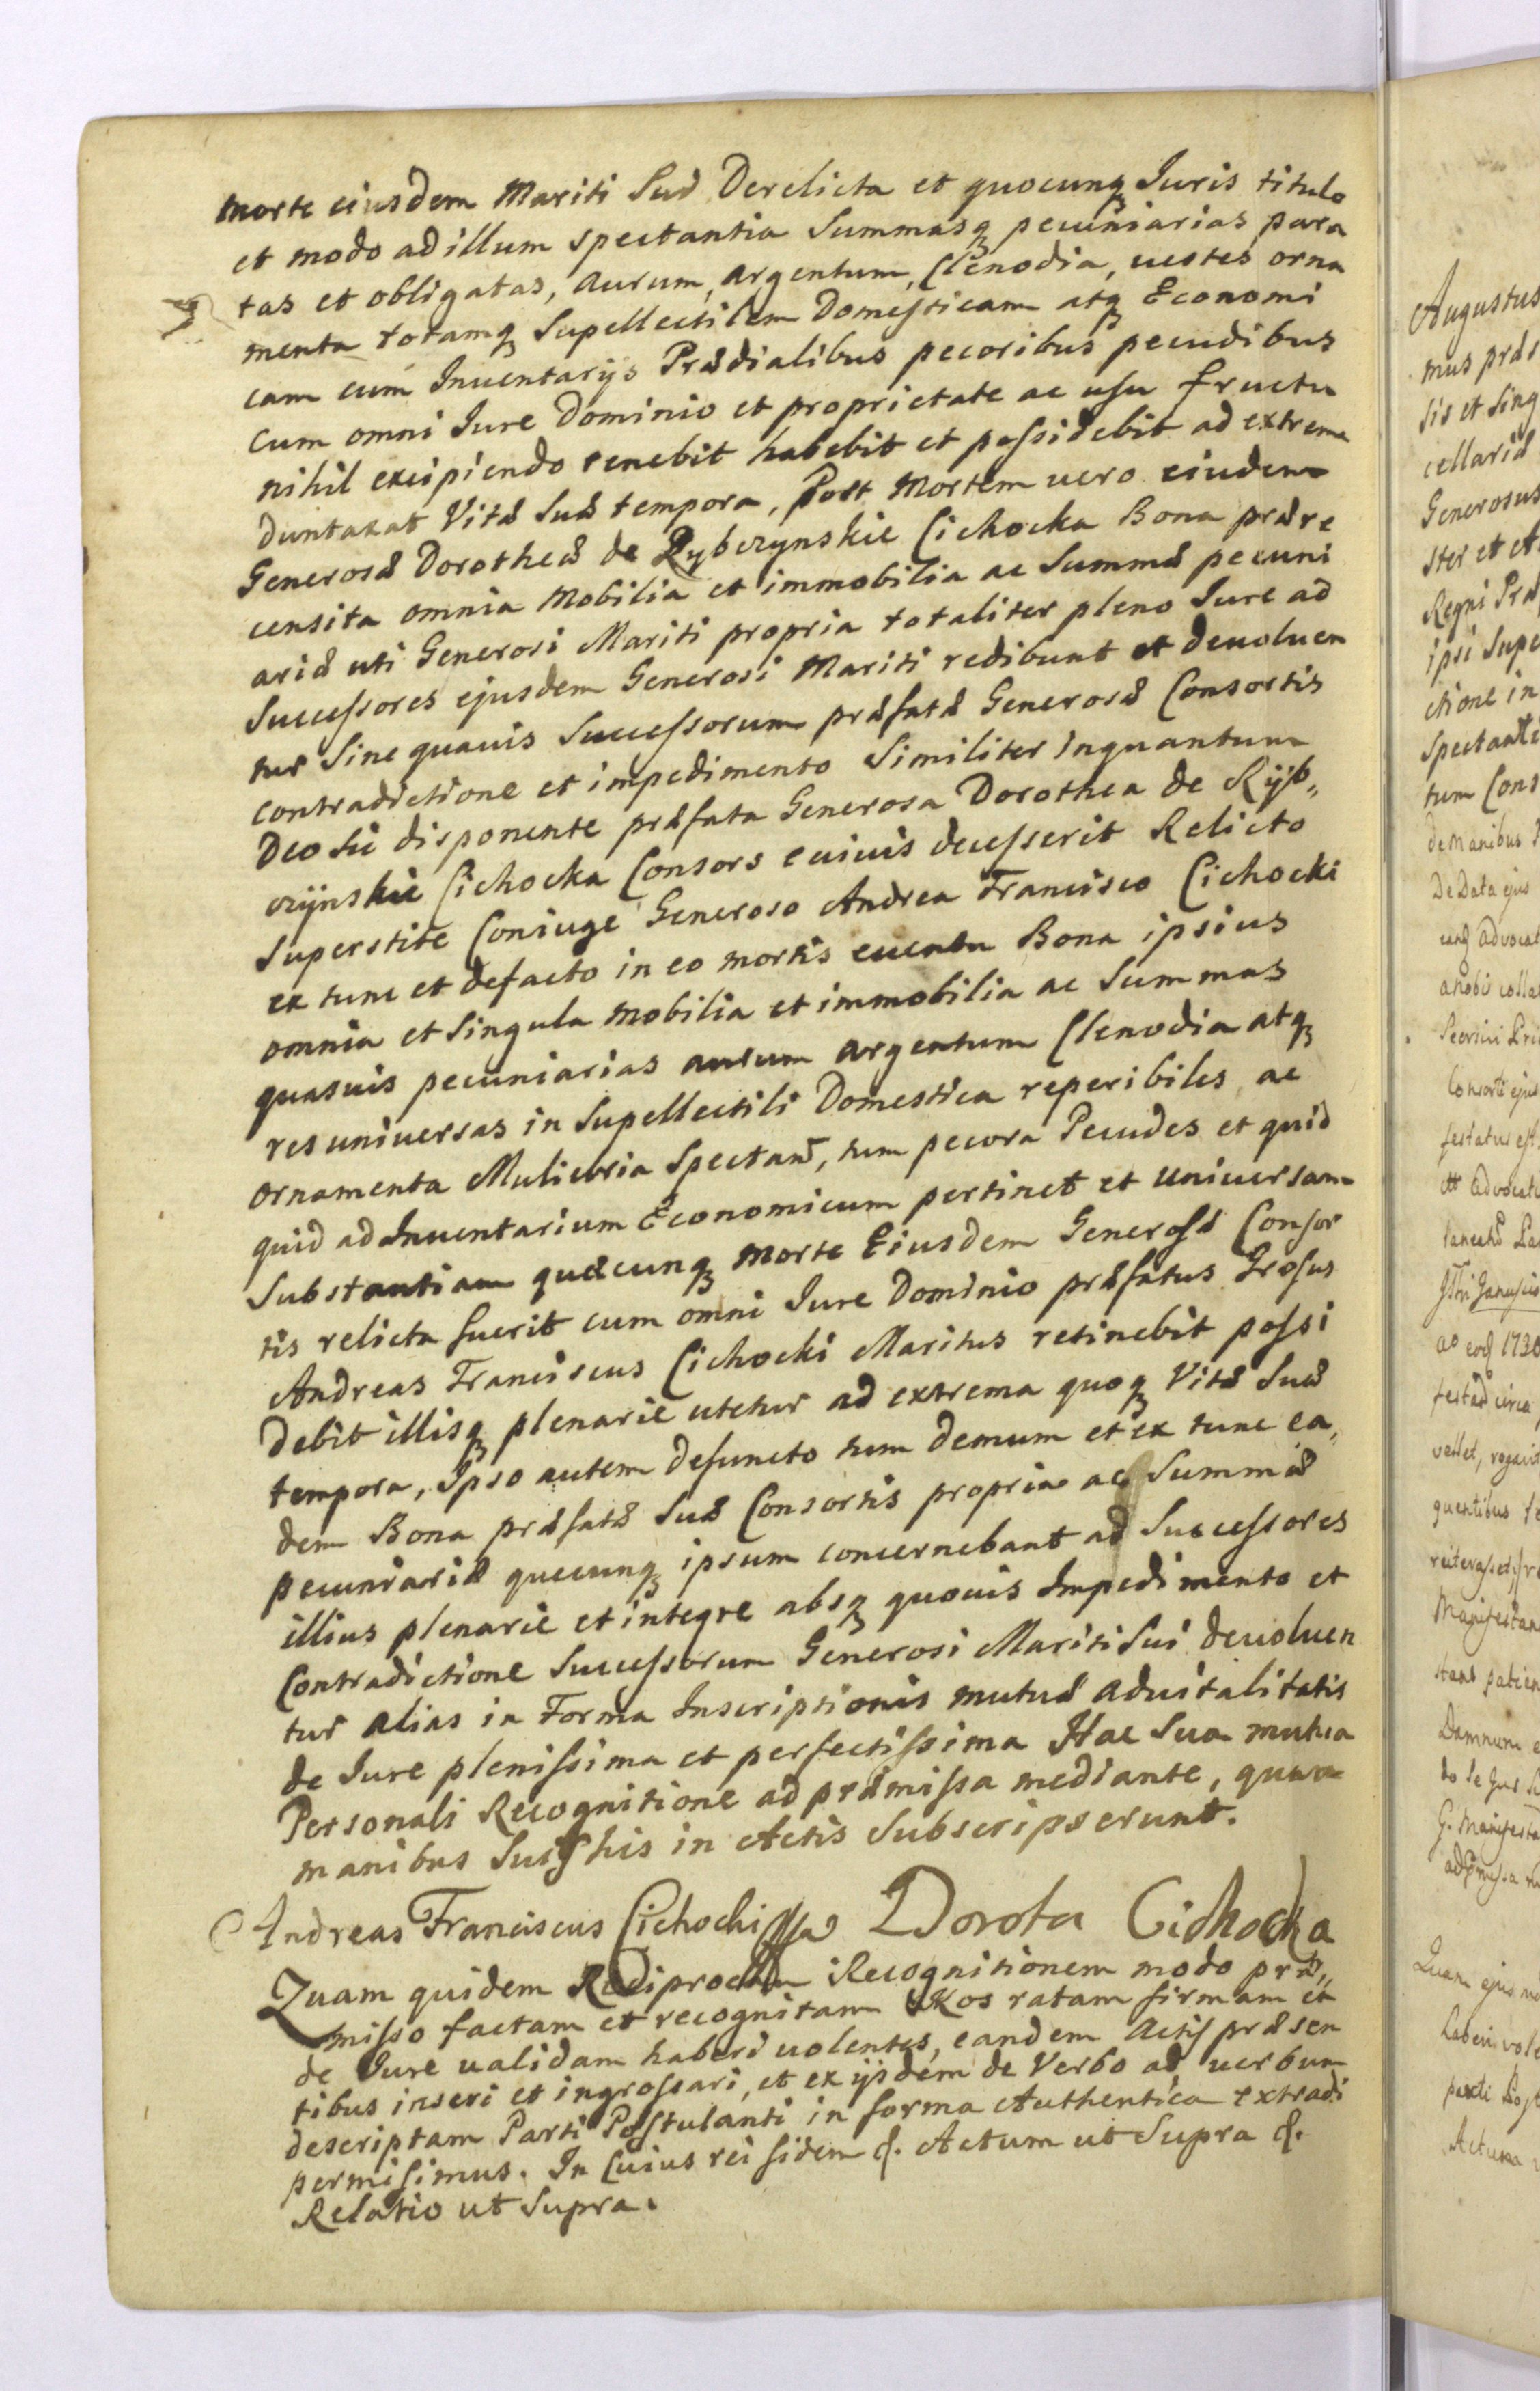 morte eiusdem Mariti Suæ Derelicta et quocunq Iuris titulo
et modo ad illum spectantia Summasq pecuniarias para
tas et obligatas, Aurum, Argentum, Clenodia, uestes orna
menta totamq Supellectilem Domesticam atq Economi
cam cum Inuentarijs Prædialibus pecoribus pecudibus
cum omni Iure Dominio et proprietate ac usu fructu
nihil excipiendo tenebit habebit et possidebit ad extrema
duntaxat Vitæ Suæ tempora, Post Mortem uero eiudem
Generosæ Dorotheæ de Rybczynskie Cichocka Bona prære
censita omnia Mobilia et immobilia ac Summæ pecuni
ariæ uti Generosi Mariti propria totaliter pleno Iure ad
Successores ejusdem Generosi Mariti redibunt et deuoluen
tur Sine quauis Successorum præfatæ Generosæ Consortis
contradictione et impedimento Similiter inquantum
Deo Sic disponente præfata Generosa Dorothea de Ryb„
czynskie Cichocka Consors e uiuis decesserit Relicto
Superstite Coniuge Generoso Andrea Francisco Cichocki
ex tunc et defacto in eo mortis euentu Bona ipsius
omnia et Singula mobilia et immobilia ac Summas
quasuis pecuniarias aurum argentum Clenodia atq
res uniuersas in Supellectili Domestica reperibiles ac
ornamenta Muliebria Spectan, tum pecora Pecudes et quid
quid ad Inuentarium Economicum pertinet et uniuersam
Substantiam quæcunq morte Eiusdem Generosæ Consor
tis relicta fuerit cum omni Iure Dominio præfatus Grosus
Andreas Franciscus Cichocki Maritus retinebit possi
debit illisq plenarie utetur ad extrema quoq Vitæ Suæ
tempora, Ipso autem defuncto tum demum et ex tunc ea„
dem Bona præfatæ Suæ Consortis propria ac Summæ
pecuniariæ quecunq ipsum concernebant ad Successores
illius plenarie et integre absq quouis Impedimento et
Contradictione Successorum Generosi Mariti Sui deuoluen
tur alias in Forma Inscriptionis mutuæ aduitalitatis
de Iure plenissima et perfectissima Hac Sua mutua
Personali Recognitione ad præmissa mediante, quam
manibus Suis his in Actis Subscripserunt.
Andreas Franciscus Cichocki Dorota Cichocka
Quam quidem Reciprocam Recognitionem modo præ„
misso factam et recognitam Nos ratam firmam et
de Iure ualidam haberi uolentes, eandem Actis præsen
tibus inseri et ingrossari, et ex ijsdem de Verbo ad uerbum
descriptam Parti Postulanti in forma Authentica extradi
permisimus. In Cuius rei fidem &. Actum ut Supra &.
Relatio ut Supra.
Augustus
mus præs
sis et Sing
cellariæ
Generosus
Regni Præ
ipsi Supe
ctione in
Spectante
tum Cons
de Manibus
De Data ejus